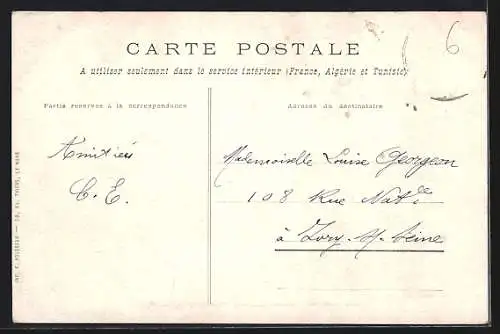 CARTE POSTALE
6
A utiliser seulement dans le service intérieur (France, Algérie et Tunisie)
Partie réservée à la correspondance
Adresse du destinataire
Amitiés
C. E.
Mademoiselle Louise Georgeon
108 Rue Nat^le
à Ivry-s/-Seine